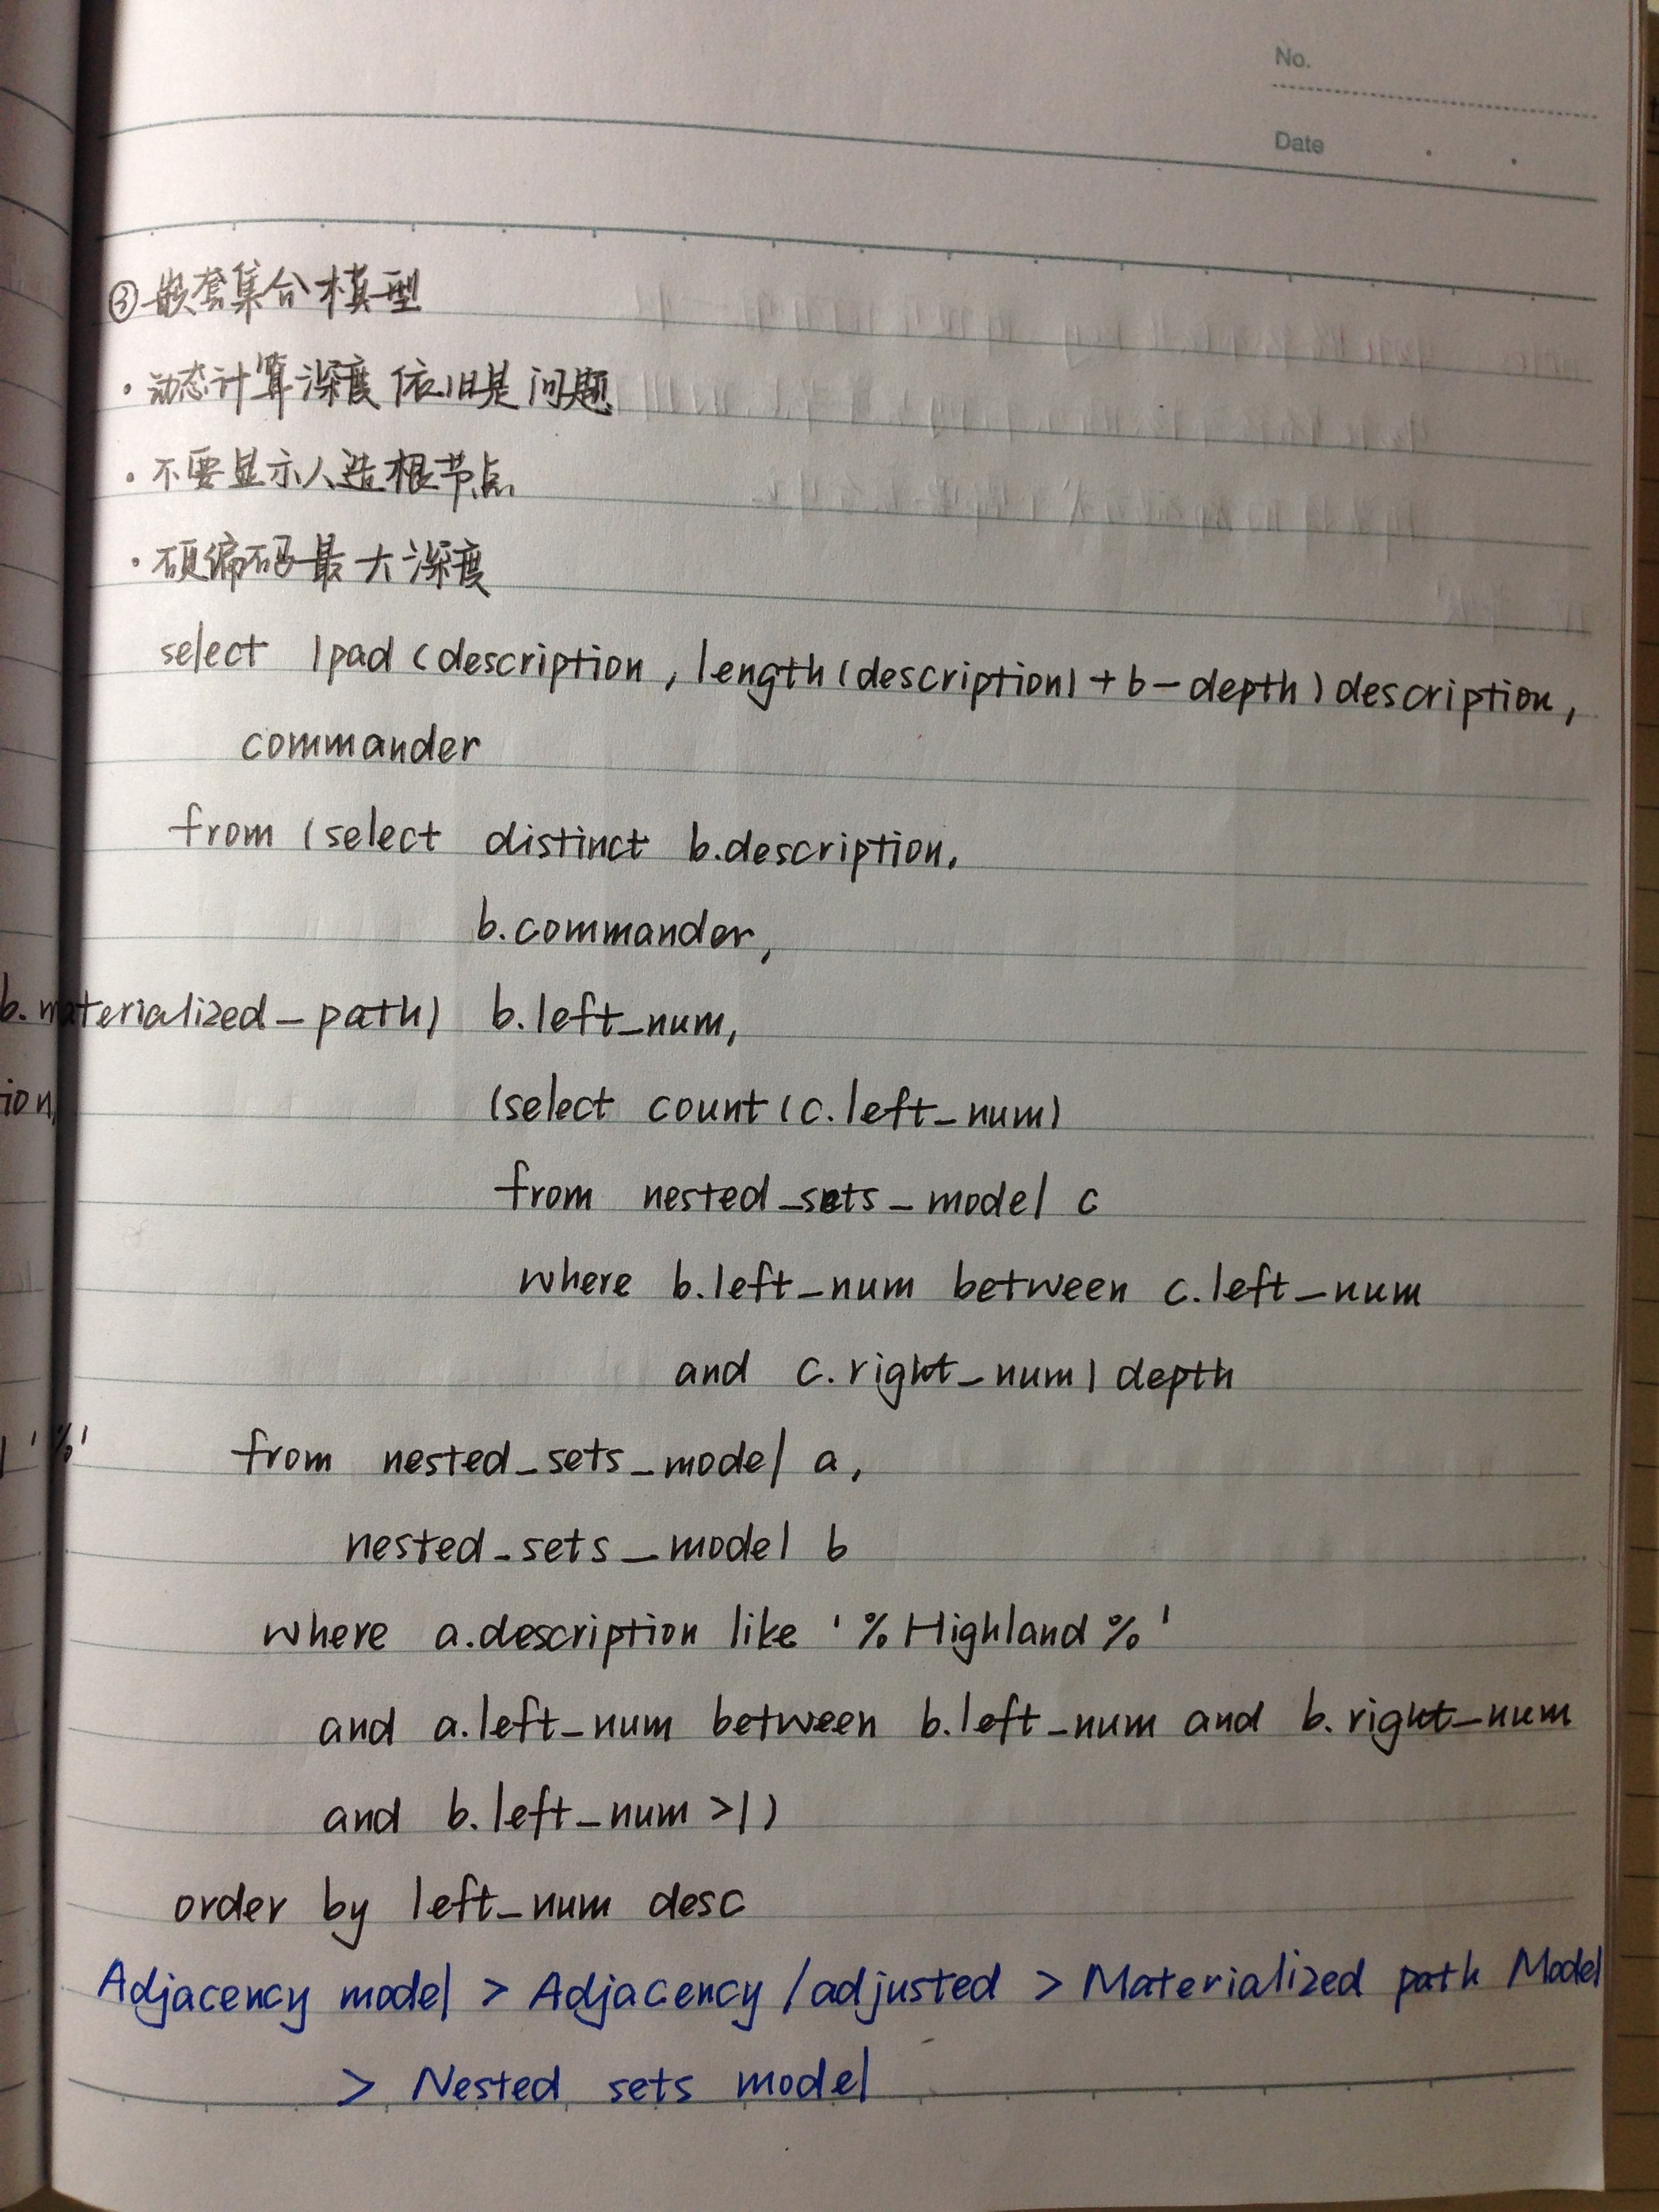 No.
Date
③嵌套集合模型
·动态计算深度依旧是问题
·不要显示人造根节点
·硬编码最大深度
select lpad (description, length (description) + b - depth) description,
commander
from (select distinct b.description,
b.commander,
b.materialized_path) b.left_num,
(select count (c.left_num)
ion,
from nested_sets_model c
where b.left_num between c.left_num
and c.right_num) depth
'%' from nested_sets_model a,
nested_sets_model b
where a.description like '%Highland%'
and a.left_num between b.left_num and b.right_num
and b.left_num >1)
order by left_num desc
Adjacency model > Adjacency /adjusted > Materialized path Model
> Nested sets model